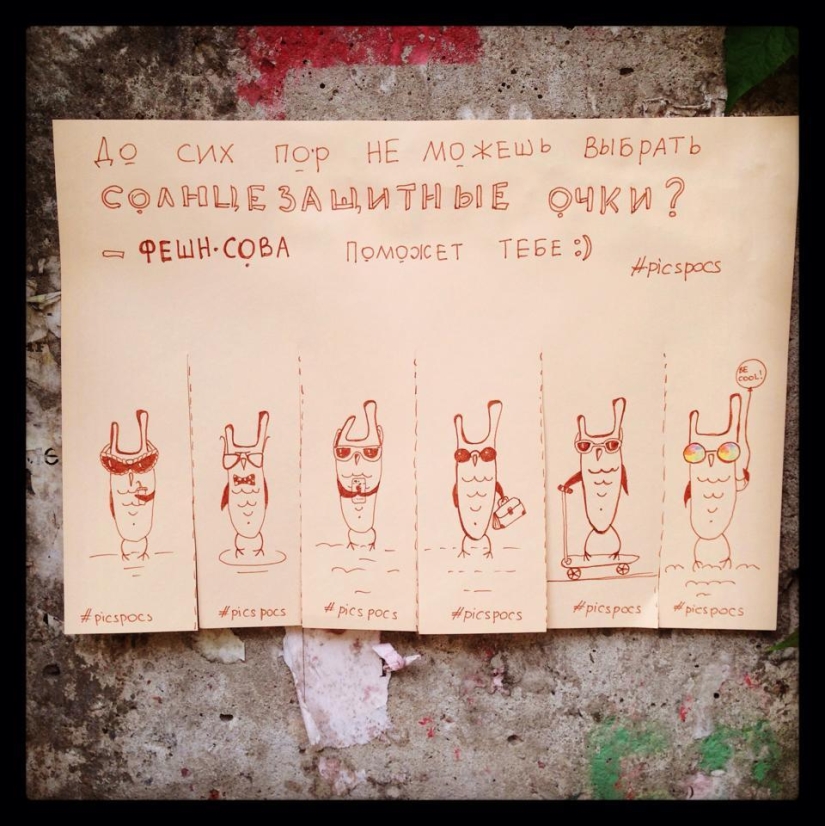 ДО СИХ ПОР НЕ МОЖЕШЬ ВЫБРАТЬ
СОЛНЦЕЗАЩИТНЫЕ ОЧКИ?
– ФЕШН·СОВА ПОМОЖЕТ ТЕБЕ :)
#picspocs
BE
COOL!
#picspocs
#picspocs
#picspocs
#picspocs
#picspocs
#picspocs